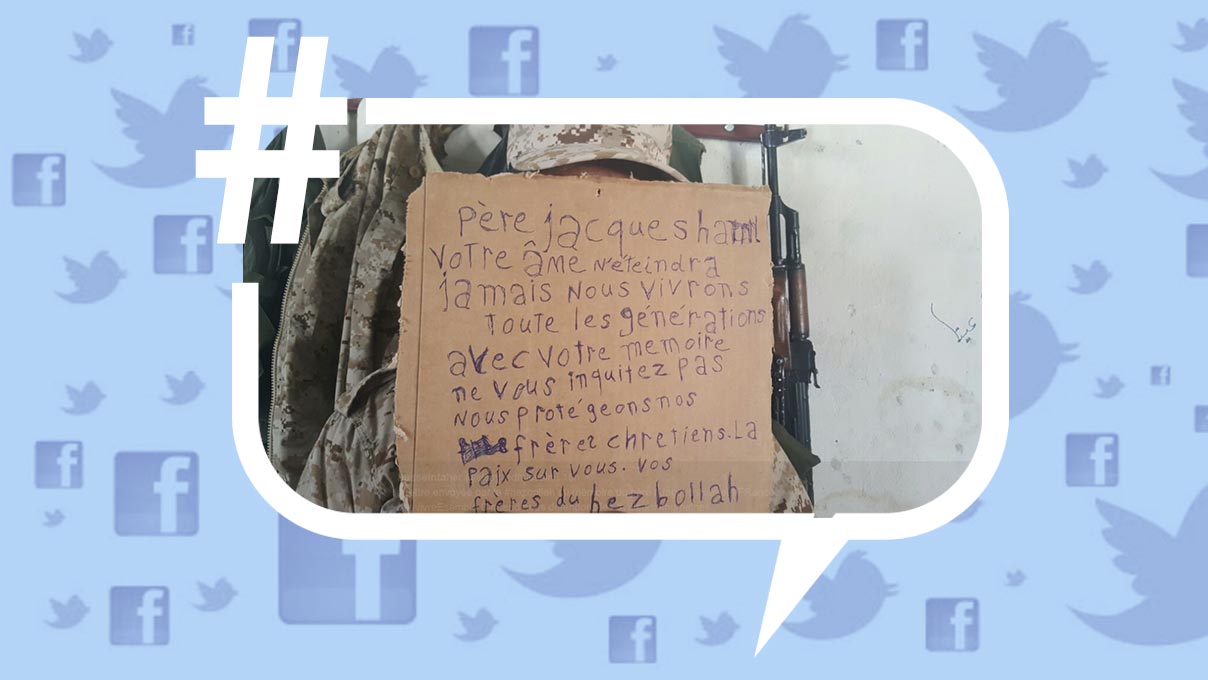 #
Père jacques haml
voTre âme N'éTeindra
jamais Nous vivrons
TouTe les générations
avec voTre memoire
ne vous inquitez pas
Nous protégeons nos
frères chreTiens. La
paix sur vous. vos
frères du hezbollah